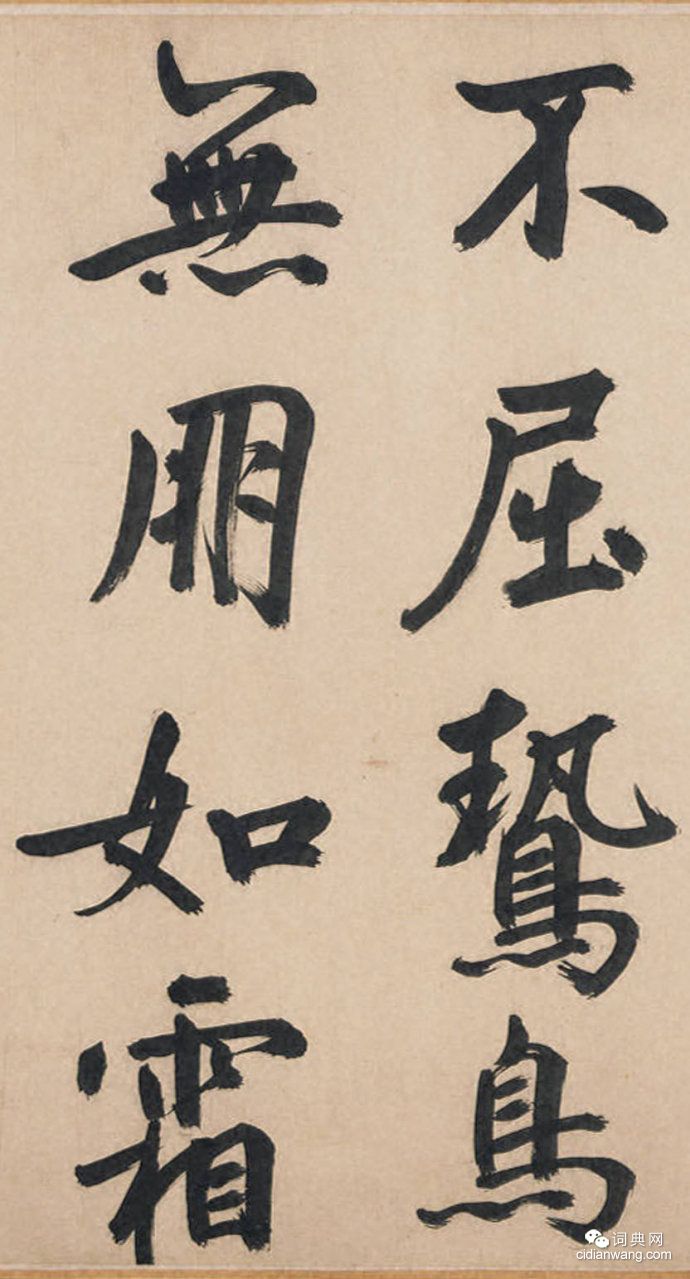 不屈鷙鳥
無朋如霜
词典网
cidianwang.com